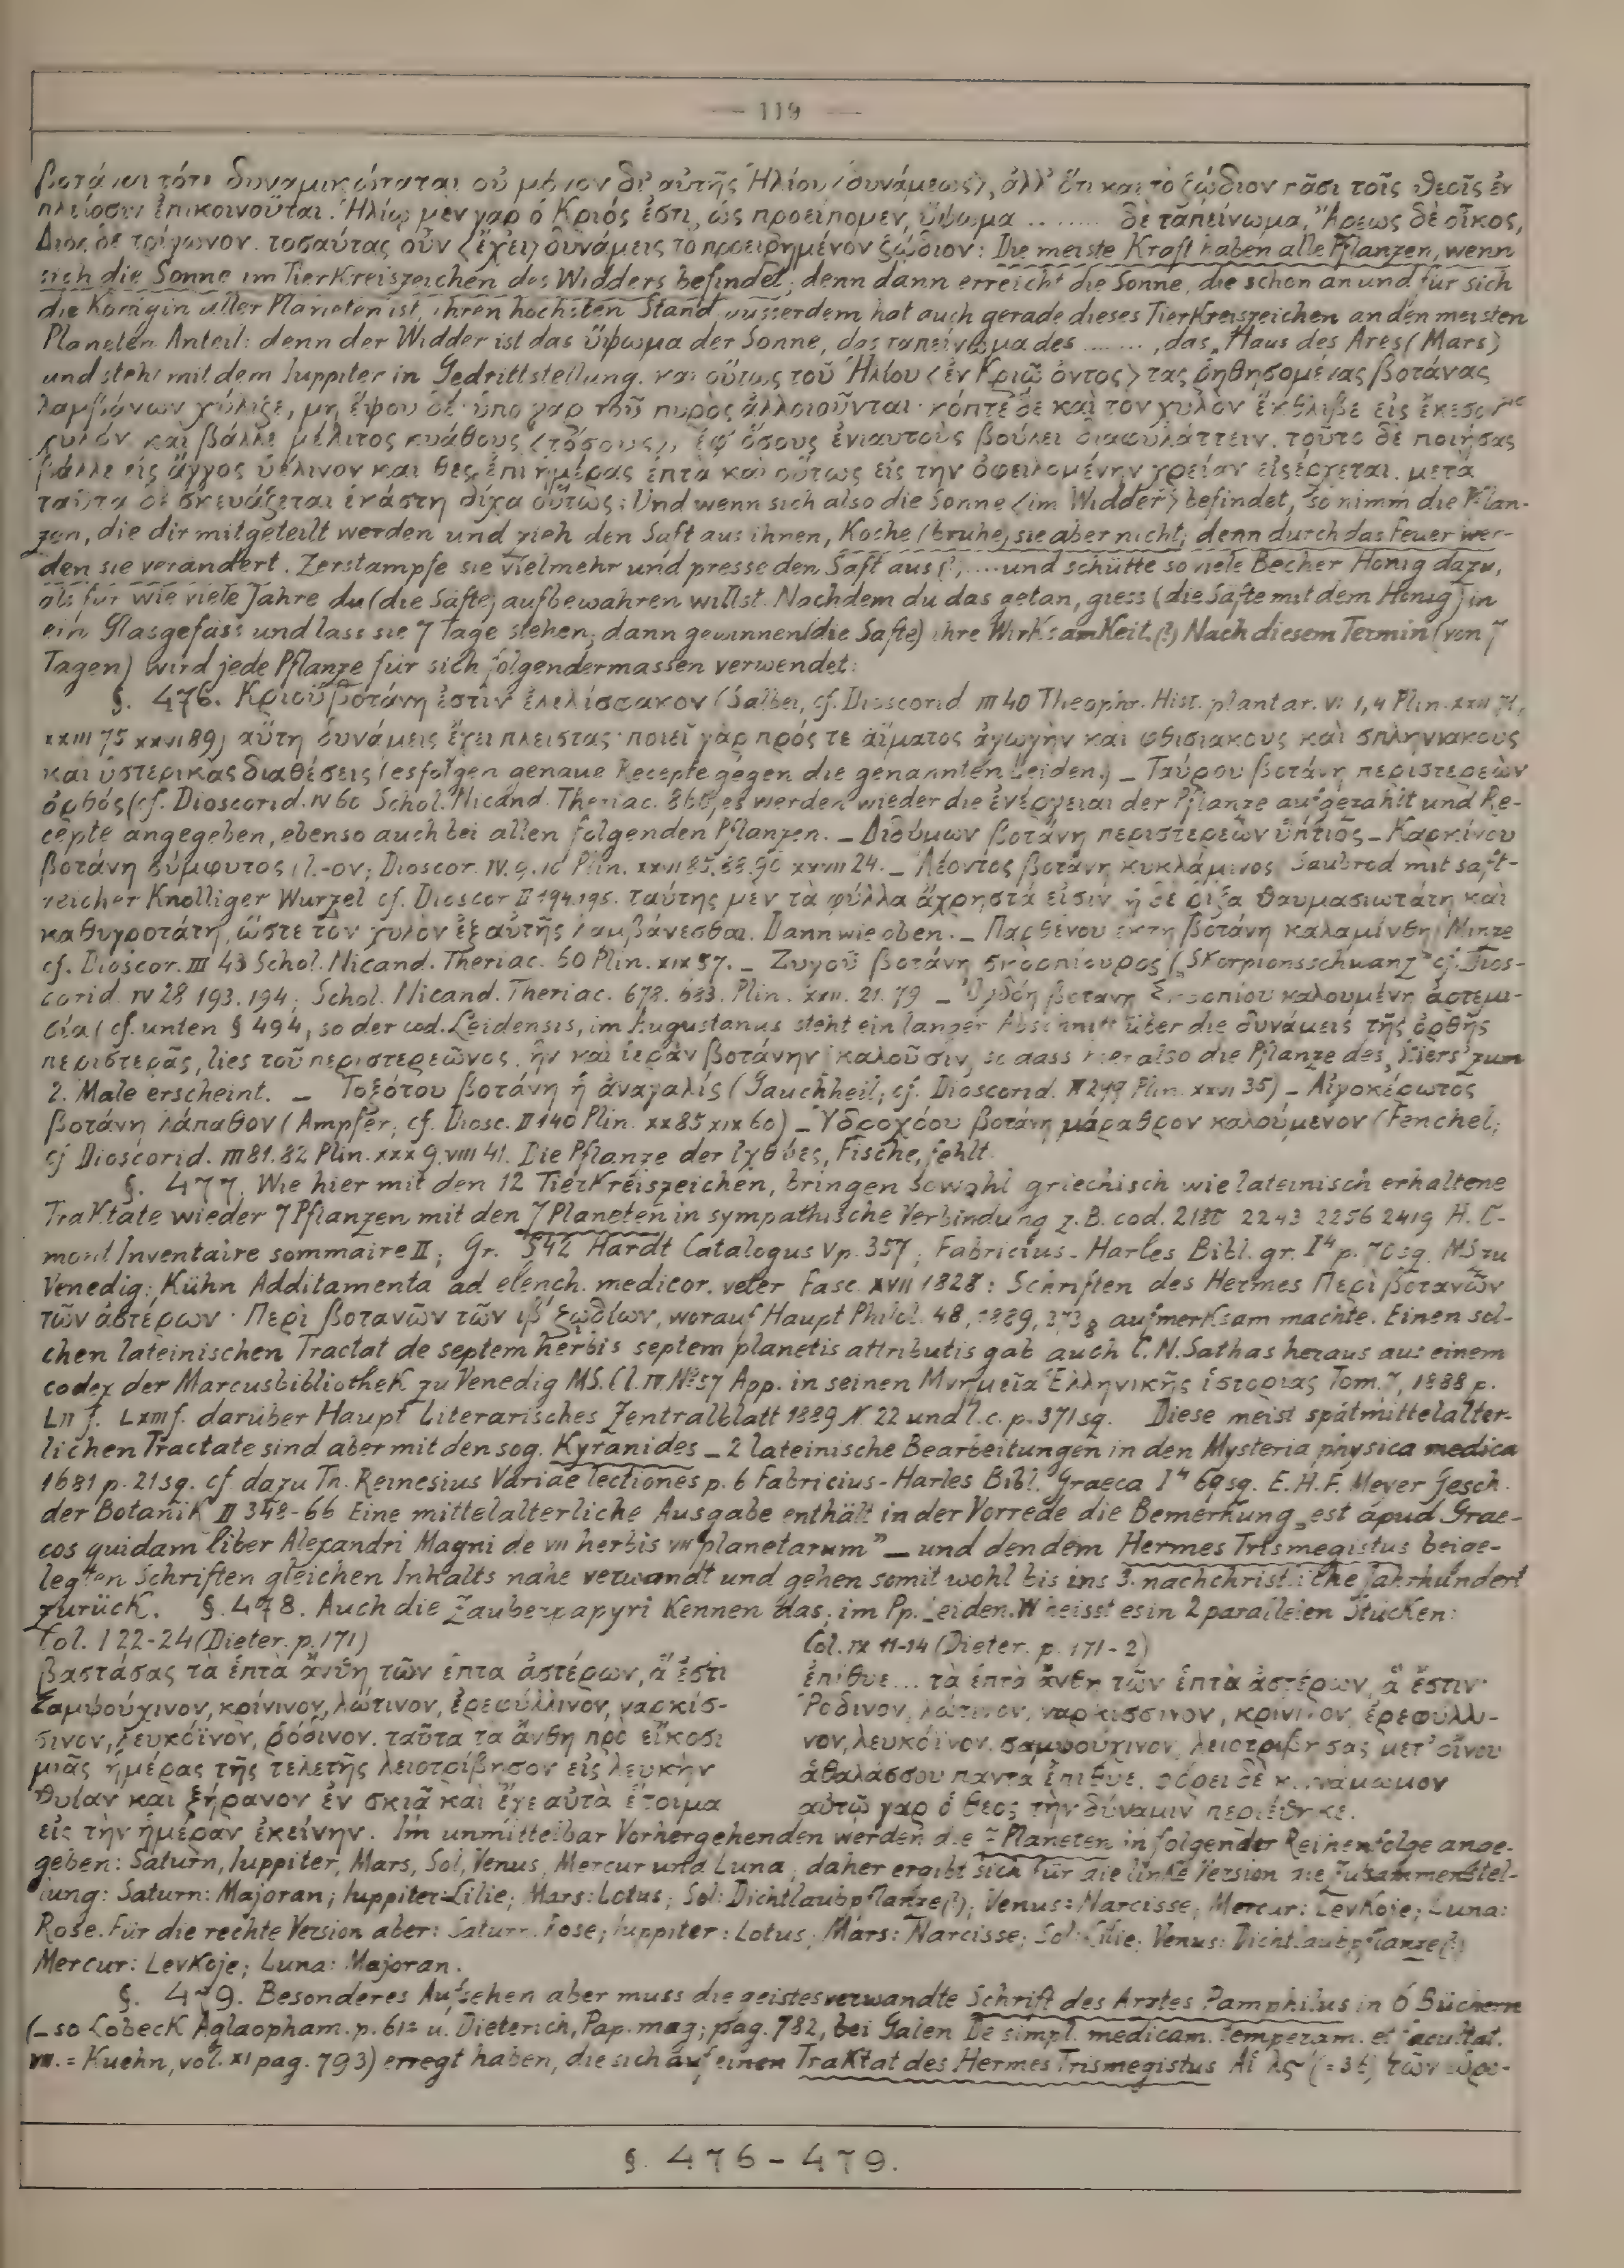 — 119 —
βοτάναι τότε δυναμικώταται οὐ μόνον δι' αὐτῆς Ἡλίου ⟨δυνάμεως⟩, ἀλλ' ὅτι καὶ τὸ ζῴδιον πᾶσι τοῖς θεοῖς ἐν
πλείοσιν ἐπικοινοῦται. Ἡλίῳ μὲν γὰρ ὁ Κριός ἐστι, ὡς προείπομεν, ὕψωμα ........ δὲ ταπείνωμα, Ἄρεως δὲ οἶκος,
Διὸς δὲ τρίγωνον. τοσαύτας οὖν ⟨ἔχει⟩ δυνάμεις τὸ προειρημένον ζῴδιον: Die meiste Kraft haben alle Pflanzen, wenn
sich die Sonne im Tierkreiszeichen des Widders befindet; denn dann erreicht die Sonne, die schon an und für sich
die Königin aller Planeten ist, ihren höchsten Stand, ausserdem hat auch gerade dieses Tierkreiszeichen an den meisten
Planeten Anteil: denn der Widder ist das ὕψωμα der Sonne, das ταπείνωμα des ......., das „Haus des Ares (Mars)
und steht mit dem Iuppiter in Gedrittstellung. καὶ οὕτως τοῦ Ἡλίου ⟨ἐν Κριῷ ὄντος⟩ τὰς ῥηθησομένας βοτάνας
λαμβάνων χύλιζε, μὴ ἕψου δέ· ὑπὸ γὰρ τοῦ πυρὸς ἀλλοιοῦνται· κόπτε δὲ καὶ τὸν χυλὸν ἔκθλιβε εἰς
χυλόν καὶ βάλλε μέλιτος κυάθους ⟨τόσους⟩, ἐφ' ὅσους ἐνιαυτοὺς βούλει διαφυλάττειν. τοῦτο δὲ ποιήσας
βάλλε εἰς ἄγγος ὑέλινον καὶ θὲς ἐπὶ ἡμέρας ἑπτὰ καὶ οὕτως εἰς τὴν ὀφειλομένην χρείαν εἰσέρχεται. μετὰ
ταῦτα δὲ σκευάζεται ἑκάστη δίχα οὕτως: Und wenn sich also die Sonne ⟨im Widder⟩ befindet, so nimm die Pflan-
zen, die dir mitgeteilt werden und zieh den Saft aus ihnen, Koche (brühe) sie aber nicht; denn durch das Feuer wer-
den sie verändert. Zerstampfe sie vielmehr und presse den Saft aus (?, .... und schütte so viele Becher Honig dazu,
als für wie viele Jahre du (die Säfte) aufbewahren willst. Nachdem du das getan, giess (die Säfte mit dem Honig) in
ein Glasgefäss und lass sie 7 Tage stehen; dann gewinnen (die Säfte) ihre Wirksamkeit.(?) Nach diesem Termin (von 7
Tagen) wird jede Pflanze für sich folgendermassen verwendet:
§. 476. Κριοῦ βοτάνη ἐστὶν ἐλελίσφακον (Salbei, cf. Dioscorid III 40 Theophr. Hist. plantar. VI 1,4 Plin. XXII 71,
XXIII 75 XXVI 89) αὕτη δυνάμεις ἔχει πλείστας· ποιεῖ γὰρ πρός τε αἵματος ἀγωγὴν καὶ φθισιακοὺς καὶ σπληνιακοὺς
καὶ ὑστερικὰς διαθέσεις (es folgen genaue Recepte gegen die genannten Leiden.) – Ταύρου βοτάνη περιστερεὼν
ὀρθός (cf. Dioscorid. IV 60 Schol. Nicand. Theriac. 860, es werden wieder die ἐνέργειαι der Pflanze aufgezählt und Re-
cepte angegeben, ebenso auch bei allen folgenden Pflanzen. – Διδύμων βοτάνη περιστερεὼν ὕπτιος – Καρκίνου
βοτάνη σύμφυτος (l. -ον; Dioscor. IV. 9. 10 Plin. XXVI 85. 88. 90 XXVII 24. – Λέοντος βοτάνη κυκλάμινος Saubrod mit saft-
reicher Knolliger Wurzel cf. Dioscor II 194. 195. ταύτης μὲν τὰ φύλλα ἄχρηστά εἰσιν, ἡ δὲ ῥίζα θαυμασιωτάτη καὶ
καθυγροτάτη, ὥστε τὸν χυλὸν ἐξ αὐτῆς λαμβάνεσθαι. Dann wie oben. – Παρθένου ἕκτη βοτάνη καλαμίνθη Minze
cf. Dioscor. III 43 Schol. Nicand. Theriac. 60 Plin. XIX 57. – Ζυγοῦ βοτάνη σκορπίουρος („Skorpionsschwanz" cf. Dios-
corid. IV 28 193. 194; Schol. Nicand. Theriac. 678. 683. Plin. XXII. 21. 79 – Ὀγδόη βοτάνη Σκορπίου καλουμένη ἀρτεμι-
σία (cf. unten § 494, so der cod. Leidensis, im Augustanus steht ein langer Abschnitt über die δυνάμεις τῆς ὀρθῆς
περιστερᾶς, lies τοῦ περιστερεῶνος, ἣν καὶ ἱερὰν βοτάνην καλοῦσιν, so dass hier also die Pflanze des „Stiers" zum
2. Male erscheint. – Τοξότου βοτάνη ἡ ἀναγαλίς (Gauchheil; cf. Dioscorid. II 249 Plin. XXVI 35) – Αἰγοκέρωτος
βοτάνη λάπαθον (Ampfer; cf. Diosc. II 140 Plin. XX 85 XIX 60) – Ὑδροχόου βοτάνη μάραθρον καλούμενον (Fenchel;
cf Dioscorid. III 81. 82 Plin. XXX 9. VIII 41. Die Pflanze der ἰχθύες, Fische, fehlt.
§. 477. Wie hier mit den 12 Tierkreiszeichen, bringen sowohl griechisch wie lateinisch erhaltene
Traktate wieder 7 Pflanzen mit den 7 Planeten in sympathische Verbindung z. B. cod. 2180 2243 2256 2419 H. O-
mont Inventaire sommaire II; Gr. 542 Hardt Catalogus V p. 357; Fabricius - Harles Bibl. gr. I⁴ p. 70 sq. MS zu
Venedig; Kühn Additamenta ad elench. medicor. veter Fasc. XVII 1828: Schriften des Hermes Περὶ βοτανῶν
τῶν ἀστέρων · Περὶ βοτανῶν τῶν ιβ' ζῳδίων, worauf Haupt Philol. 48, 1889, 373 8 aufmerksam machte. Einen sol-
chen lateinischen Tractat de septem herbis septem planetis attributis gab auch C. N. Sathas heraus aus einem
codex der Marcusbibliothek zu Venedig MS. Cl. IV. № 57 App. in seinen Μνημεῖα Ἑλληνικῆς ἱστορίας Tom. 7, 1888 p.
LII f. LXIII f. darüber Haupt Literarisches Zentralblatt 1889 N. 22 und l. c. p. 371 sq. Diese meist spätmittelalter-
lichen Tractate sind aber mit den sog. Kyranides – 2 lateinische Bearbeitungen in den Mysteria physica medica
1681 p. 21 sg. cf dazu Th. Reinesius Variae lectiones p. 6 Fabricius - Harles Bibl. Graeca I⁴ 69 sg. E. H. F. Meyer Gesch.
der Botanik II 348-66 Eine mittelalterliche Ausgabe enthält in der Vorrede die Bemerkung „est apud Grae-
cos quidam liber Alexandri Magni de VII herbis VII planetarum" – und den dem Hermes Trismegistus beige-
legten Schriften gleichen Inhalts nahe verwandt und gehen somit wohl bis ins 3. nachchristliche Jahrhundert
zurück. §. 478. Auch die Zauberpapyri Kennen das; im Pp. Leiden. W heisst es in 2 parallelen Stücken:
Col. I 22-24 (Dieter. p. 171)
βαστάσας τὰ ἑπτὰ ἄνθη τῶν ἑπτὰ ἀστέρων, ἅ ἐστι
Σαμψούχινον, κρίνινον, λώτινον, ἐρεφύλλινον, ναρκίσ-
σινον, λευκόϊνον, ῥόδινον. ταῦτα τὰ ἄνθη πρὸ εἴκοσι
μιᾶς ἡμέρας τῆς τελετῆς λειοτρίβησον εἰς λευκὴν
θυίαν καὶ ξήρανον ἐν σκιᾷ καὶ ἔχε αὐτὰ ἕτοιμα
εἰς τὴν ἡμέραν ἐκείνην.
Col. IX 11-14 (Dieter. p. 171-2)
ἐπίθυε... τὰ ἑπτὰ ἄνθη τῶν ἑπτὰ ἀστέρων, ἅ ἐστιν·
Ῥόδινον, λώτινον, ναρκίσσινον, κρίνινον, ἐρεφύλλι-
νον, λευκόϊνον, σαμψούχινον, λειοτριβήσας μετ' οἴνου
ἀθαλάσσου πάντα ἐπίθυε. φόρει δὲ κιννάμωμον
αὐτῷ γὰρ ὁ θεὸς τὴν δύναμιν περιέθηκε.
Im unmittelbar Vorhergehenden werden die 7 Planeten in folgender Reihenfolge ange-
geben: Saturn, Iuppiter, Mars, Sol, Venus, Mercur und Luna; daher ergibt sich für die linke Version die Zusammenstel-
lung: Saturn: Majoran; Iuppiter: Lilie; Mars: Lotus; Sol: Dichtlaubpflanze(?); Venus: Narcisse; Mercur: Levkoje; Luna:
Rose. Für die rechte Version aber: Saturn: Rose; Iuppiter: Lotus; Mars: Narcisse; Sol: Lilie; Venus: Dichtlaubpflanze(?)
Mercur: Levkoje; Luna: Majoran.
§. 479. Besonderes Aufsehen aber muss die geistesverwandte Schrift des Arztes Pamphilus in 6 Büchern
(– so Lobeck Aglaopham. p. u. Dieterich, Pap. mag; pag. 782, bei Galen De simpl. medicam. temperam. et facultat.
VII. = Kuehn, vol. XI pag. 793) erregt haben, die sich auf einen Traktat des Hermes Trismegistus Αἱ λς' (= 36) τῶν ὡρο-
§. 476 - 479.